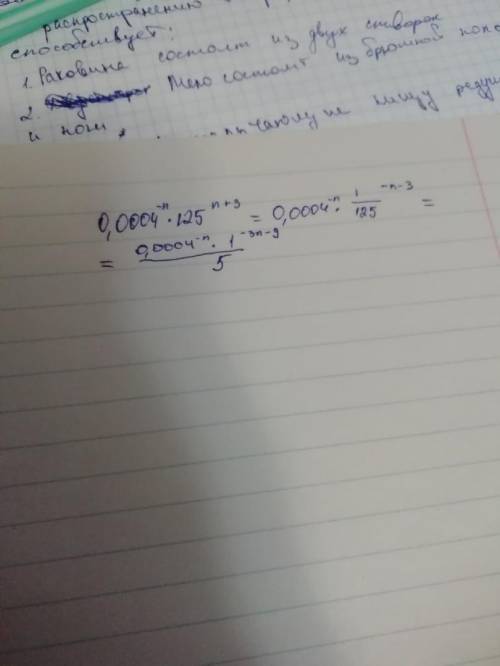 распространению
способствует:
1. Раковина состоит из двух створок
2. Тело состоит из брюшной
и ноги
пищу
0,0004^-n · 125^n+3 = 0,0004^-n · 1/125^-n-3 =
= 0,0004^-n · 1^-3n-9 / 5